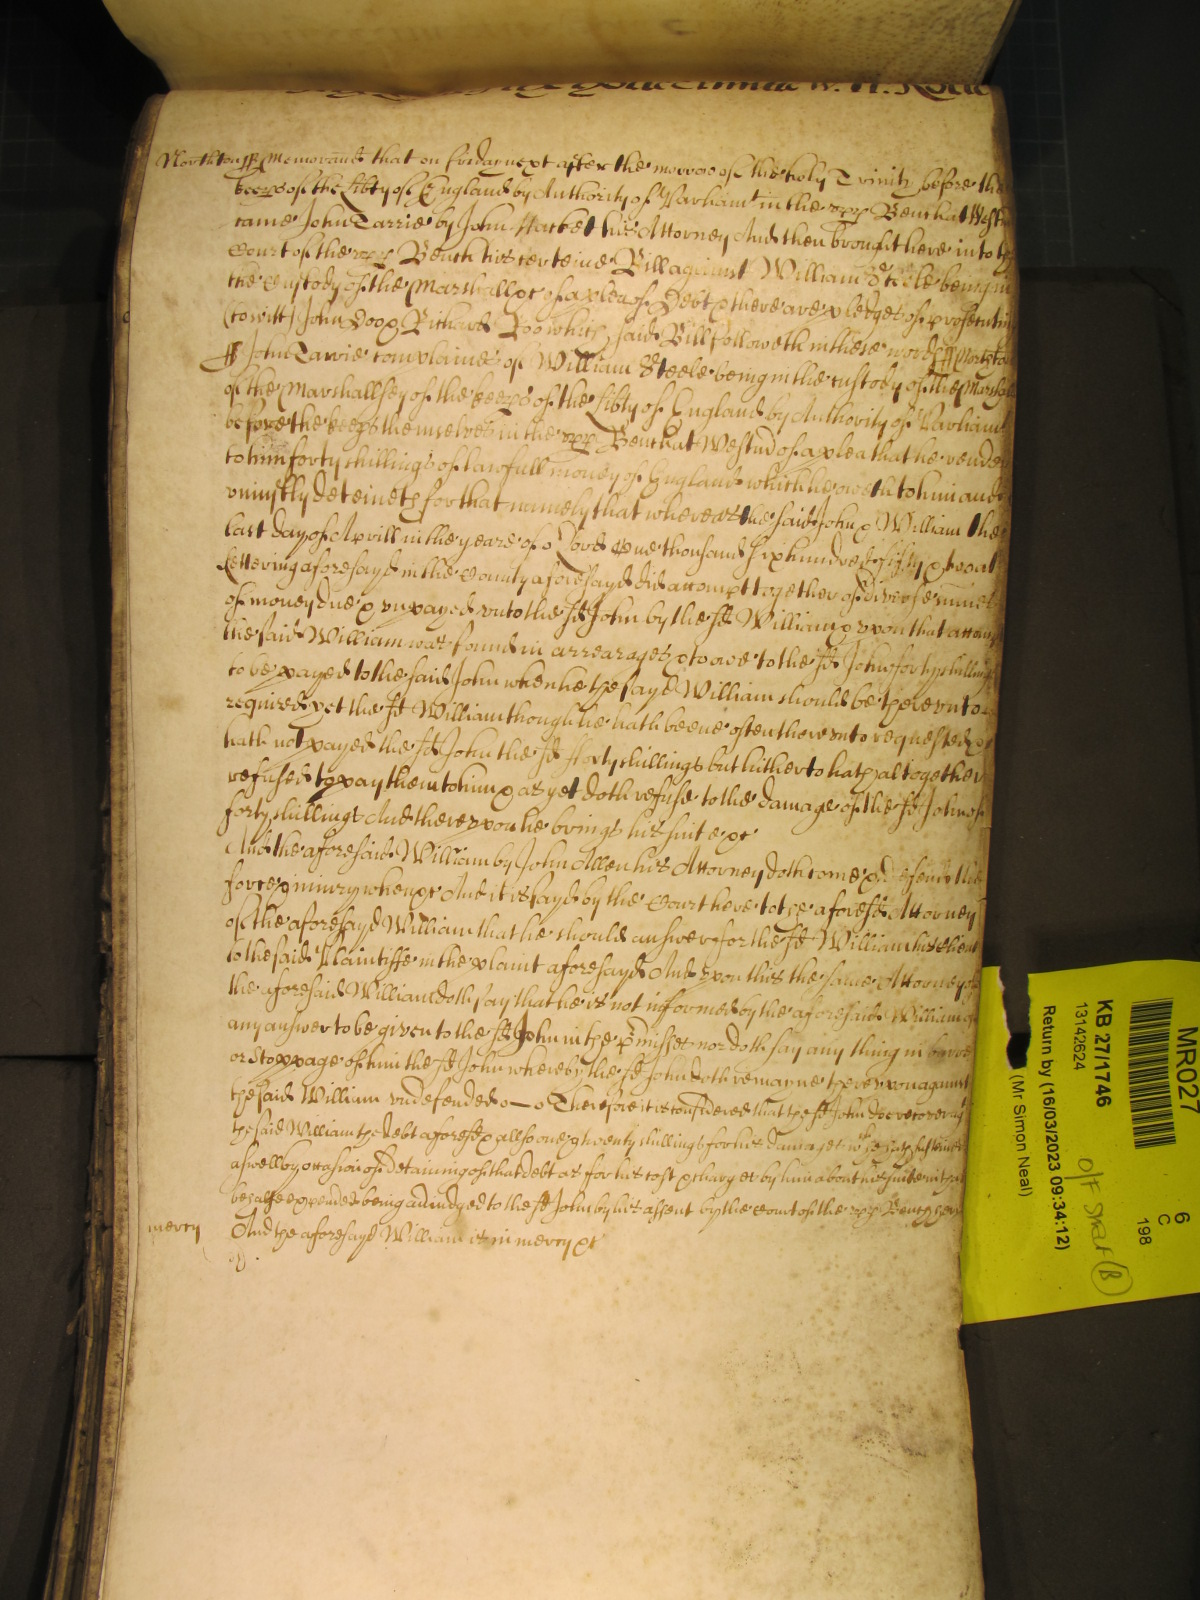 Northton ss Memorand that on friday next after the morrow of the holy Trinity before the
keeps of the libty of England by Authority of Parliamt in the upp Bench at Westm
came John Tarrie by John Hacket his Attorney And then brought here into the
Court of the upp Bench his certeine Bill against William Steele being in
the Custody of the Marshall &c of a plea of Debt & there are pledges of prosecution
(to witt) John Doo & Richard Roo which said Bill followeth in these words ss Northton
ss John Tarrie complaines of William Steele being in the custody of the Marshall
of the Marshallsey of the keeps of the libty of England by Authority of Parliamt
before the keeps themselves in the upp Bench at Westm of a plea that he render
to him forty shillings of lawfull money of England which he oweth to him and
uniustly deteineth for that namely that whereas the said John & William the
last day of Aprill in the yeare of o Lord One thousand six hundred fifty & two at
kettering aforesayd in the County aforesayd did accompt together of diverse summes
of money due & unpayed unto the sd John by the sd William & upon that accompt
the said William was found in arrearages & to owe to the sd John forty shillings
to be payed to the said John when he the sayd William should be thereunto
required yet the sd William though he hath beene often thereunto requested &c
hath not payed the sd John the sd forty shillings but hitherto hath altogether
refused to pay them to him & as yet doth refuse to the damage of the sd John of
forty shillings And thereupon he brings his suite &c
And the aforesaid William by John Allen his Attorney doth come & defend the
force & iniury when &c And it is sayd by the Court here to the aforesd Attorney
of the aforesayd William that he should answer for the sd William his client
to the said Plaintiffe in the plaint aforesayd And upon this the same Attorney of
the aforesaid William doth say that he is not informed by the aforesaid William of
any answer to be given to the sd John in the pmisses nor doth say any thing in barre
or stoppage of him the sd John whereby the sd John doth remayne thereupon against
the said William undefended o—o Therefore it is considered that the sd John doe recover agt
the said William the debt aforesd & allsoe twenty shillings for his damages wch he hath susteined
aswell by occasion of detaining of that debt as for his cost & charges by him about his suite in that
behalfe expended being adiudged to the sd John by his assent by the Court of the upp Bench here
mercy And the aforesayd William is in mercy &c
MR027
6
C
198
KB 27/1746
13142624
Return by (16/03/2023 09:34:12)
(Mr Simon Neal)